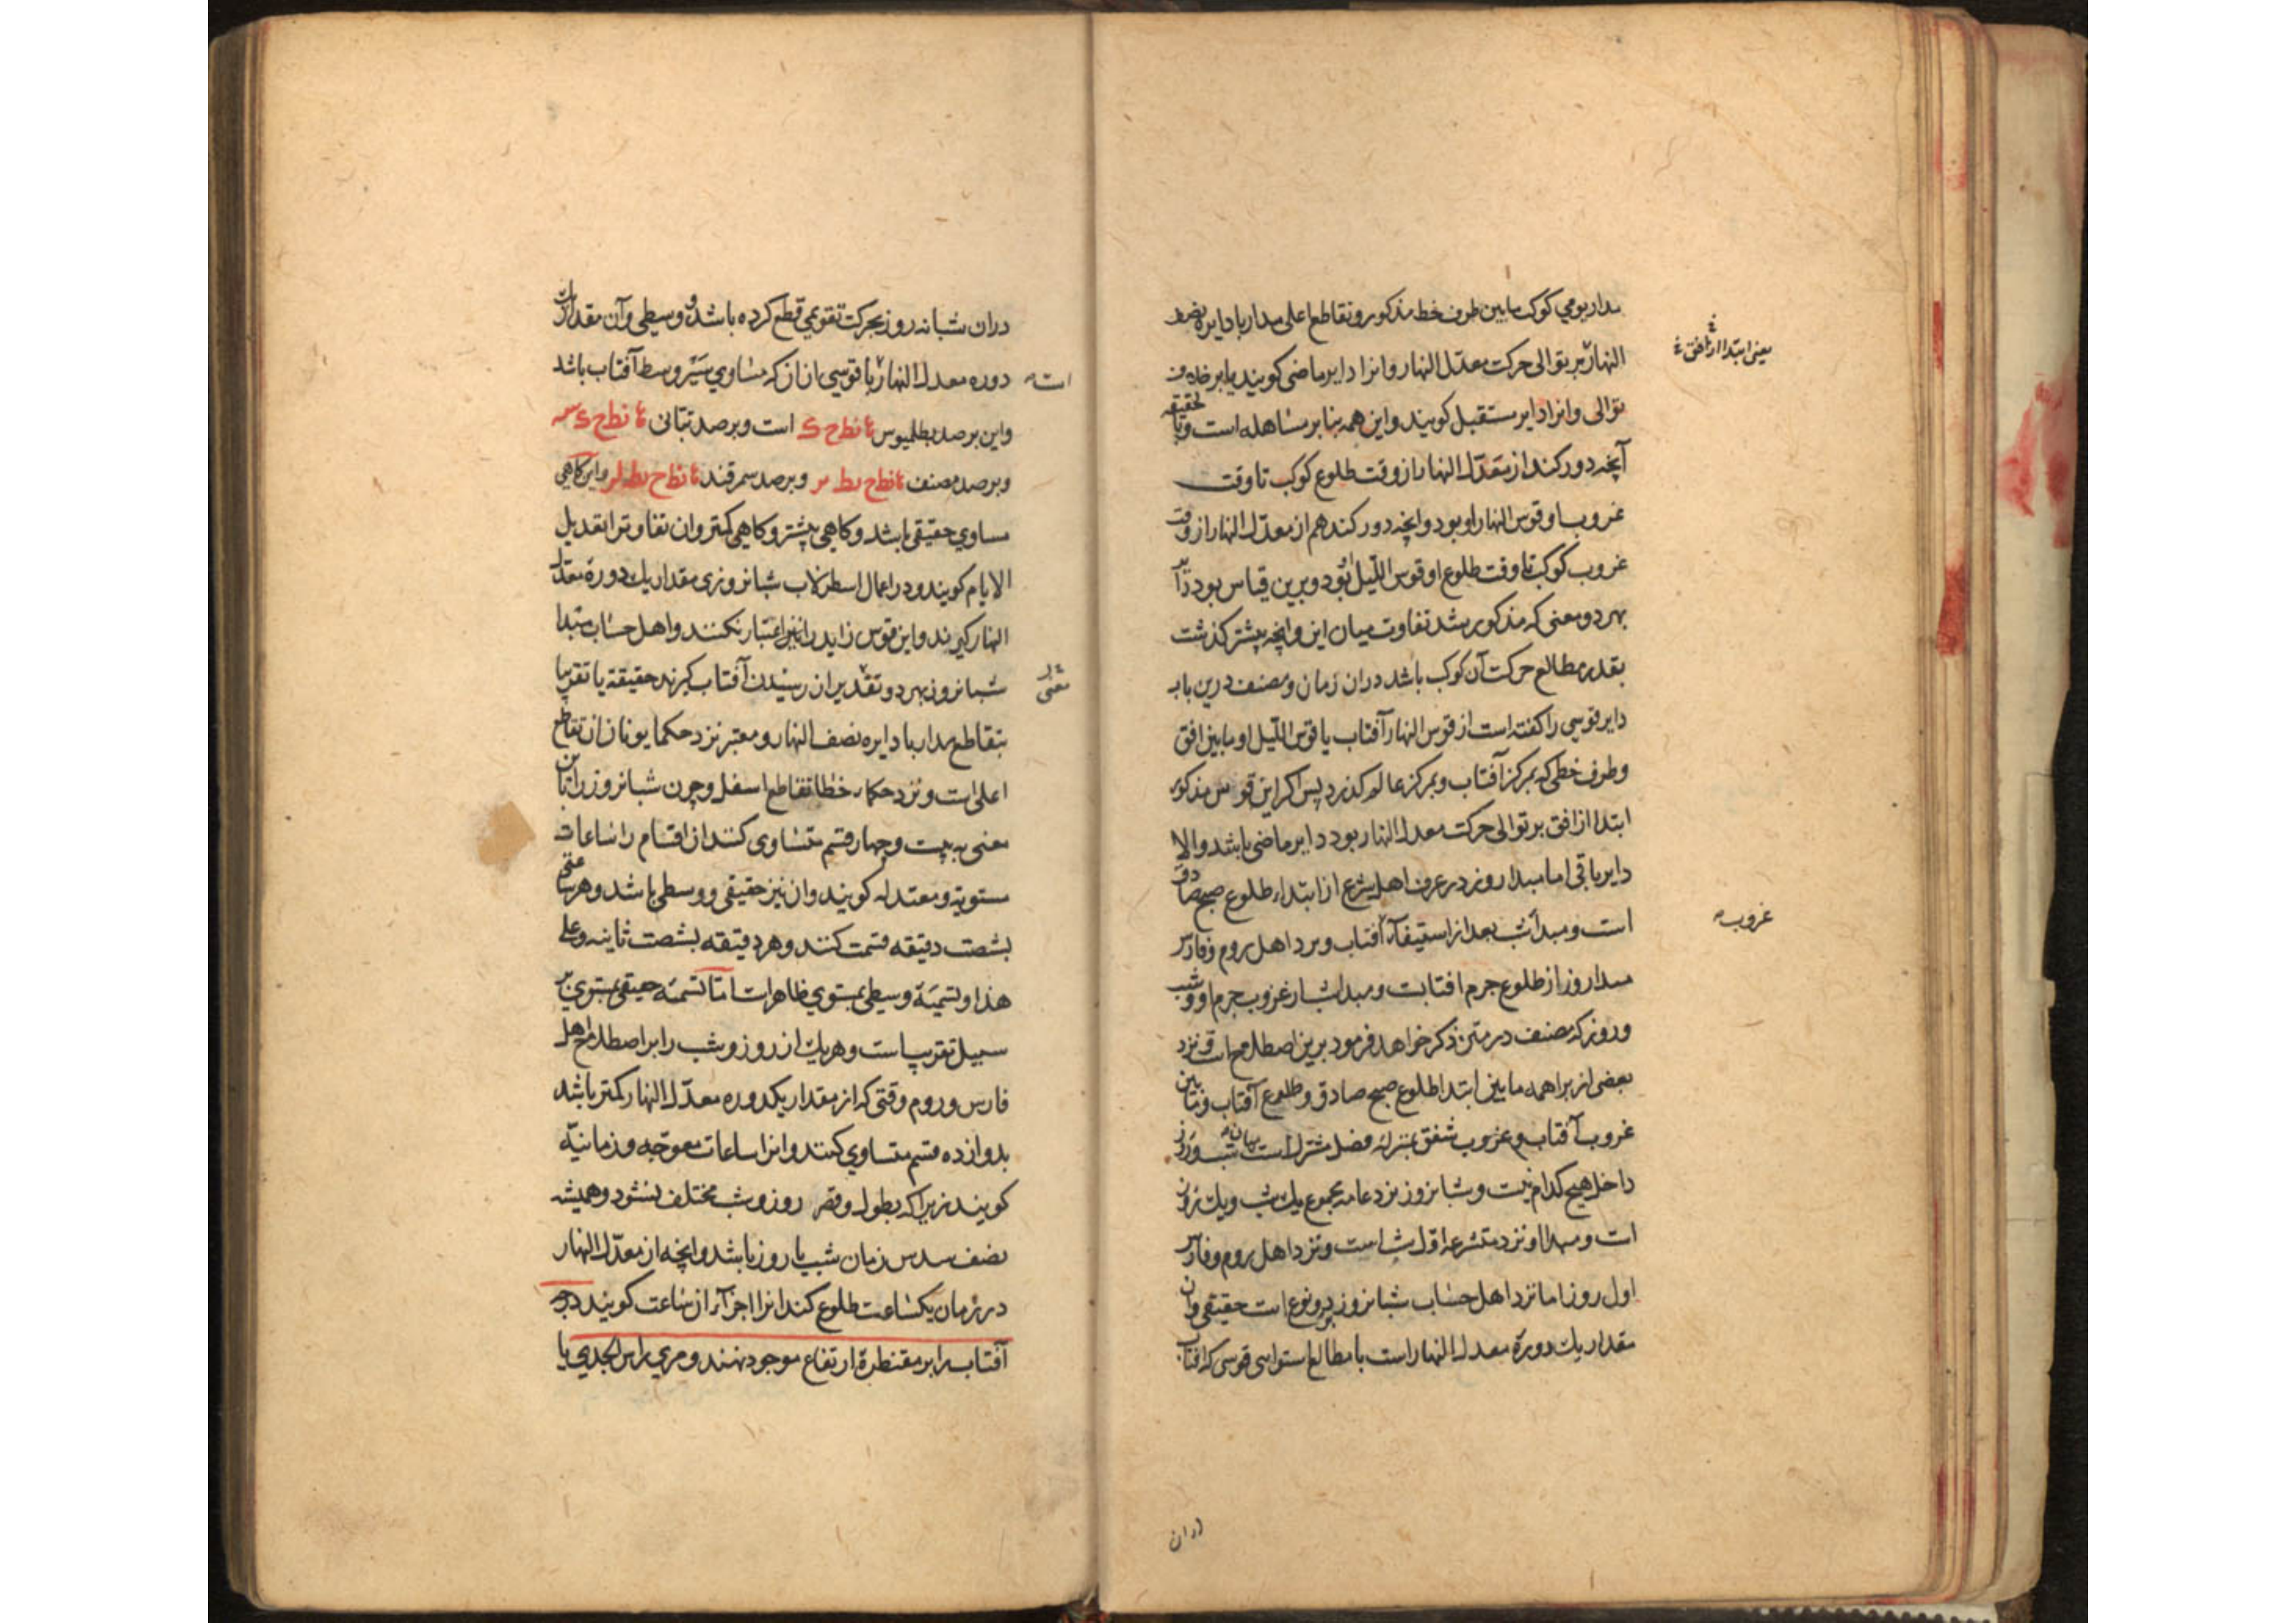 مدار یومی کوکب مابین طرف خط مذکور و تقاطع اعلی مدار با دایره نصف
النهار بر توالی حرکت معدّل النهار و انرا دایر ماضی کویند یا بر خلاف
یعنی ابتدا از افق
توالی و انرا دایر مستقبل کویند و این همه بنا بر مشاهله است و بتحقیقه
آنچه دور کند از معدّل النهار از وقت طلوع کوکب تا وقت
غروب او قوس النهار او بود و انچه دور کند هم از معدّل النهار از وقت
غروب کوکب تا وقت طلوع او قوس اللّیل بُود و برین قیاس بود دایر
بهر دو معنی که مذکور شد تفاوت میان این و انچه پیشتر کذشت
بقدر مطالع حرکت آن کوکب باشد دران زمان و مصنف درین باب
دایر قوسی را کفته است از قوس النهار آفتاب یا قوس اللّیل او مابین افق
و طرف خطی که بمرکز آفتاب و بمرکز عالم کذرد پس اکر این قوس مذکور
ابتدا از افق بر توالی حرکت معدل النهار بود دایر ماضی باشد والا
دایر باقی اما مبدا روز در عرف اهل شرع از ابتداء طلوع صبح صادق
است و مبدا شب بعد از استیفآء آفتاب و نزد اهل روم و فارس
غروب
مبدا روز از طلوع جرم افتابست و مبدا شب از غروب جرم او و شب
و روز که مصنف در متن ذکر خواهد فرمود برین اصطلاح است و نزد
بعضی از براهمه مابین ابتدا طلوع صبح صادق و طلوع آفتاب و مابین
غروب آفتاب و غروب شفق بمنزله فصل مشترک است میان شب و روز
داخل هیچ کدام نیست و شبانروز نزد عامه مجموع یک شب و یک روز
است و مبدا او نزد متشرعه اوّل شب است و نزد اهل روم و فارس
اول روز اما نزد اهل حساب شبانروز بر دو نوع است حقیقی و ان
مقدار یک دورة معدل النهار است با مطالع استوایی قوسی که افتاب
دران
دران شبانه روز بحرکت تقویمی قطع کرده باشد و وسطی و آن مقدار
دوره معدل النهار با قوسی از ان که مساوی سَیْر وسط آفتاب باشد
است
و این برصد بطلمیوس است و برصد تبانی
و برصد مصنف و برصد سمرقند و این کاهی
مساوی حقیقی باشد و کاهی بیشتر و کاهی کمتر و ان تفاوت را تعدیل
الایام کویند و در اعمال اسطرلاب شبانروزی مقدار یک دورة معدل
النهار کیرند و این قوس زاید را نیز اعتبار نکنند و اهل حساب مبتدا
شبانروز بهر دو تقدیر ان رسیدن آفتاب کیرند حقیقة یا تقریبا
معنی
بتقاطع مدار با دایره نصف النهار و معتبر نزد حکما یونان ان تقاطع
اعلی است و نزد حکماء خطا تقاطع اسفل و چون شبانروز را باین
معنی به بیست و چهار قسم متساوی کنند ان اقسام را ساعات
مستویه و معتدله کویند و ان نیز حقیقی و وسطی باشد و هر ساعتی
بشصت دقیقه قسمت کنند و هر دقیقه بشصت ثانیه و علی
هذا و تسمیَة وسطی بمستوی ظاهر است امّا تسمیَه حقیقی بمستوی بر
سبیل تقریب است و هریک از روز و شب را بر اصطلاح اهل
فارس و روم وقتی که از مقدار یکدوره معدّل النهار کمتر باشد
بدوازده قسم متساوی کنند و انرا ساعات معوّجه و زمانیّه
کویند زیرا که بطول و قصر روز و شب مختلف بشود و همیشه
نصف سدس زمان شب یا روز باشد و انچه از معدّل النهار
در زمان یکساعت طلوع کند انرا اجزآء ان ساعت کویند درجه
آفتاب را بر مقنطرة ارتفاع موجود نهند و مری راس الجدی یا